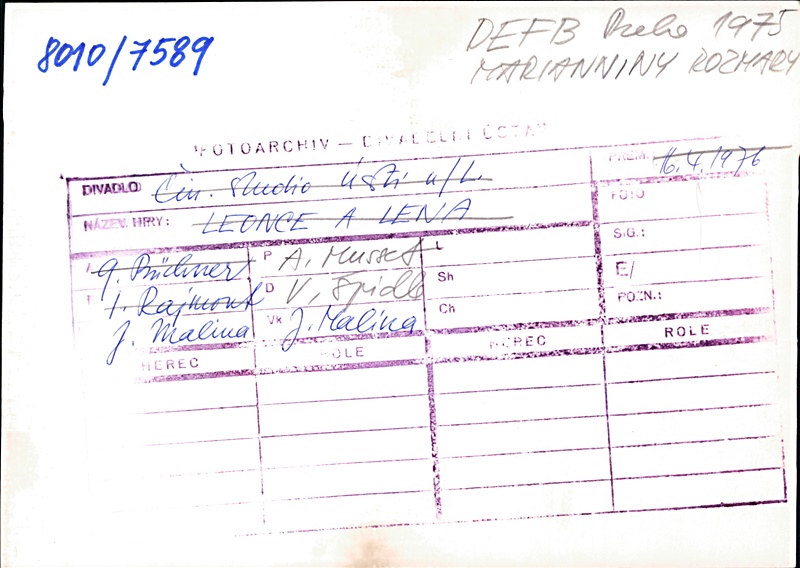 8010/7589
DEFB Praha 1975
MARIANNINY ROZMARY
FOTOARCHIV — DIVADELNÍ ÚSTAV
DIVADLO: Čin. studio Ústí n/L.
PREM. 16.4.1976
NÁZEV HRY: LEONCE A LENA
FOTO
SIG.:
E/
POZN.:
G. Büchner
P A. Musset
L
I. Rajmont
D V. Špidla
Sh
J. Malina
Vk J. Malina
Ch
HEREC ROLE HEREC ROLE